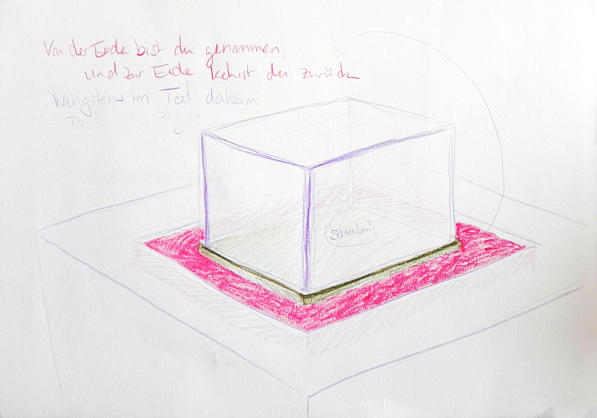 Von der Erde bist du genommen,
und zur Erde kehrst du zurück
Wenigstens im Tod daheim